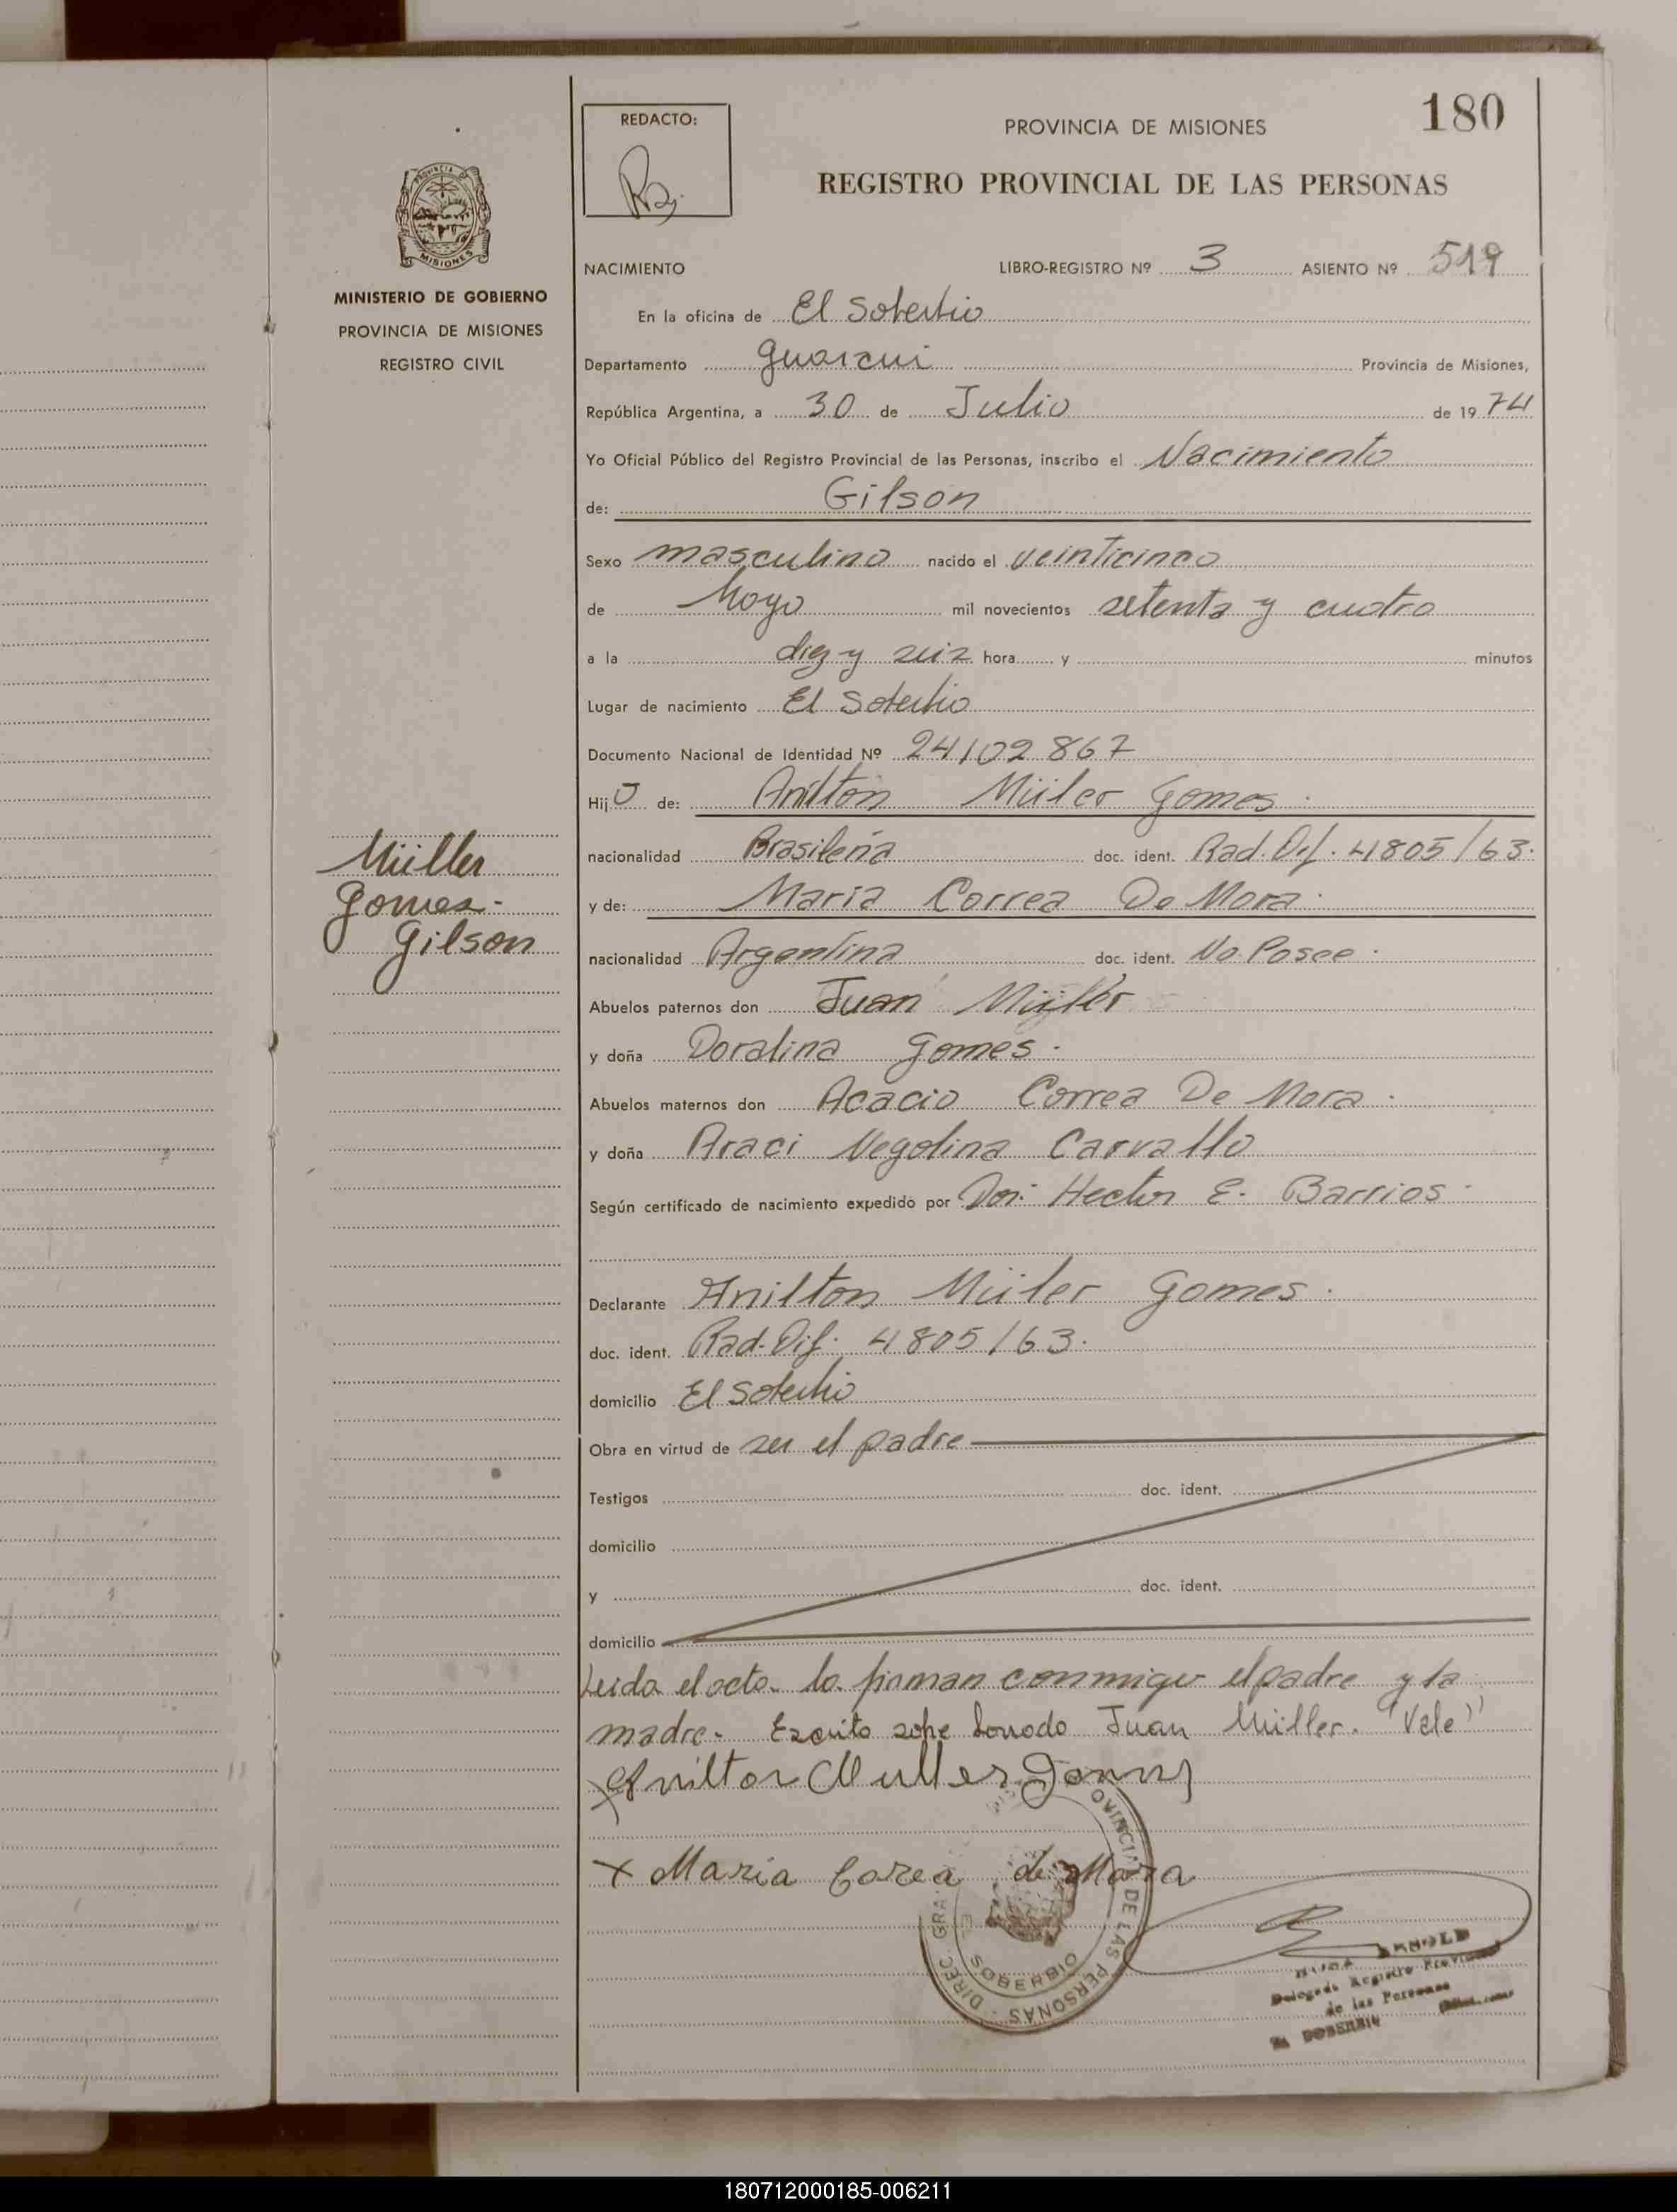 180
REDACTO:
PROVINCIA DE MISIONES
REGISTRO PROVINCIAL DE LAS PERSONAS
PROVINCIA DE
MISIONES
MINISTERIO DE GOBIERNO
PROVINCIA DE MISIONES
REGISTRO CIVIL
NACIMIENTO LIBRO-REGISTRO Nº 3 ASIENTO Nº 519
En la oficina de El Soberbio
Departamento Guarani Provincia de Misiones,
República Argentina, a 30 de Julio de 1974
Yo Oficial Público del Registro Provincial de las Personas, inscribo el Nacimiento
de: Gilson
Sexo masculino nacido el veinticinco
de Mayo mil novecientos setenta y cuatro
a la diez y seis hora y minutos
Lugar de nacimiento El Soberbio
Documento Nacional de Identidad Nº 24102867
Hijo de: Anilton Müler Gomes.
nacionalidad Brasileña doc. ident. Rad. Dif. 4805/63.
y de: Maria Correa De Mora.
nacionalidad Argentina doc. ident. No Posee.
Abuelos paternos don Juan Müller
y doña Doralina Gomes.
Abuelos maternos don Acacio Correa De Mora.
y doña Araci Negolina Carvallo
Según certificado de nacimiento expedido por Dor: Hector E. Barrios.
Declarante Anilton Müler Gomes.
doc. ident. Rad. Dif. 4805/63.
domicilio El Soberbio
Obra en virtud de ser el padre
Testigos doc. ident.
domicilio
y doc. ident.
domicilio
Leida el acta. la firman conmigo el padre y la
madre. Escrito sobre borrado Juan Müller. "Vale"
Müller
Gomes.
Gilson
Anilton Muller Gomes
x Maria Corea de Mora
DIREC. GRAL. PROVINCIAL DE LAS PERSONAS
EL SOBERBIO
Delegado Registro Provincial
de las Personas
EL SOBERBIO
180712000185-006211